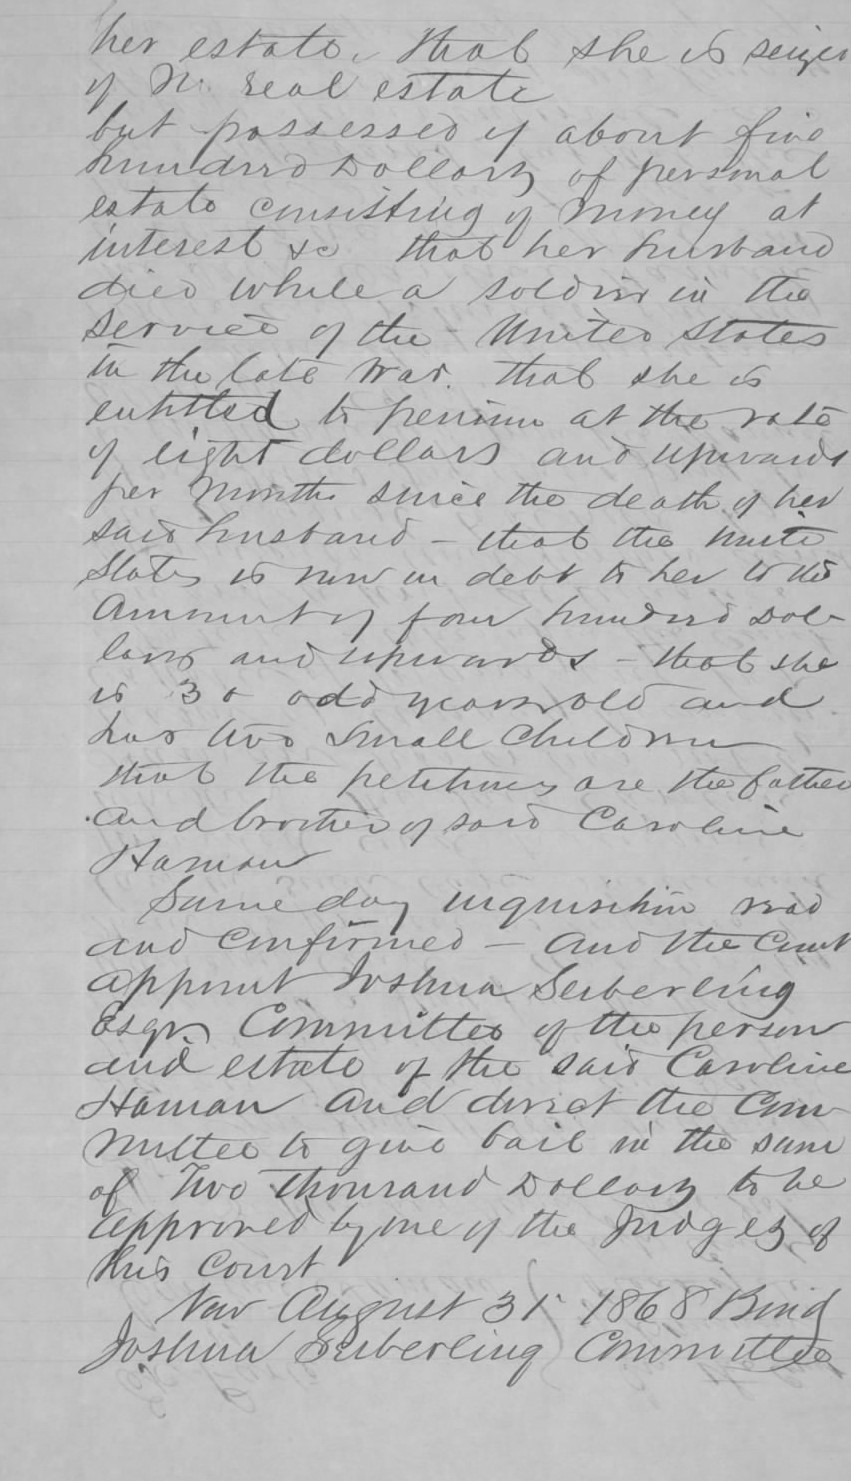 her estate, that she is seized
of no real estate
but possessed of about five
hundred Dollars of personal
estate consisting of money at
interest &c that her husband
died while a soldier in the
service of the United States
in the late war. that she is
entitled to pension at the rate
of eight dollars and upwards
per month since the death of her
said husband - that the United
States is now in debt to her to the
amount of four hundred Dol-
lars and upwards - that she
is 30 odd years old and
has two small children
that the petitioners are the father
and brother of said Caroline
Haman
Same day inquisition read
and confirmed - and the Court
appoint Joshua Seiberling
Esqr Committee of the person
and estate of the said Caroline
Haman and direct the Com-
mittee to give bail in the sum
of Two Thousand Dollars to be
approved by one of the Judges of
this Court
Now August 31 1868 Bond
Joshua Seiberling Committee